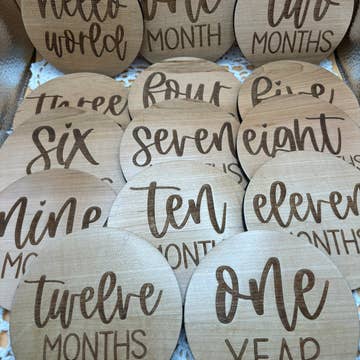 hello
world
one
MONTH
two
MONTHS
three
four
five
six
seven
eight
nine
ten
MONTH
eleven
MONTHS
twelve
MONTHS
one
YEAR